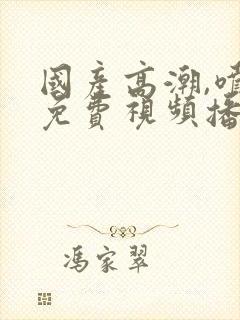 國產高潮,噴
免費視頻播
馮家翠